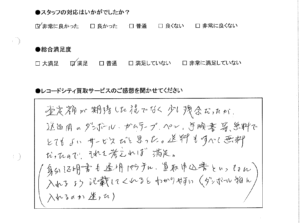 ●スタッフの対応はいかがでしたか?
☑非常に良かった □良かった □普通 □良くない □非常に良くない
●総合満足度
□大満足 ☑満足 □普通 □満足していない □非常に満足していない
●レコードシティ買取サービスのご感想を聞かせてください
査定額が期待した程でなく少し残念だったが、
送られたダンボール・ガムテープ・ペン、 無料で
とてもよいサービスだと思った。送料もすべて無料
だったので、それを考えれば 満足。
身分証明書も 買取申込書といっしょに
入れるよう記載してくれると わかりやすい(ダンボール箱に
入れるのか迷った)